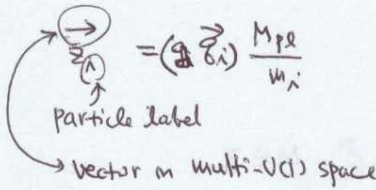 →
z_i = (g q⃗_i) M_pl / m_i
particle label
vector in multi-U(1) space